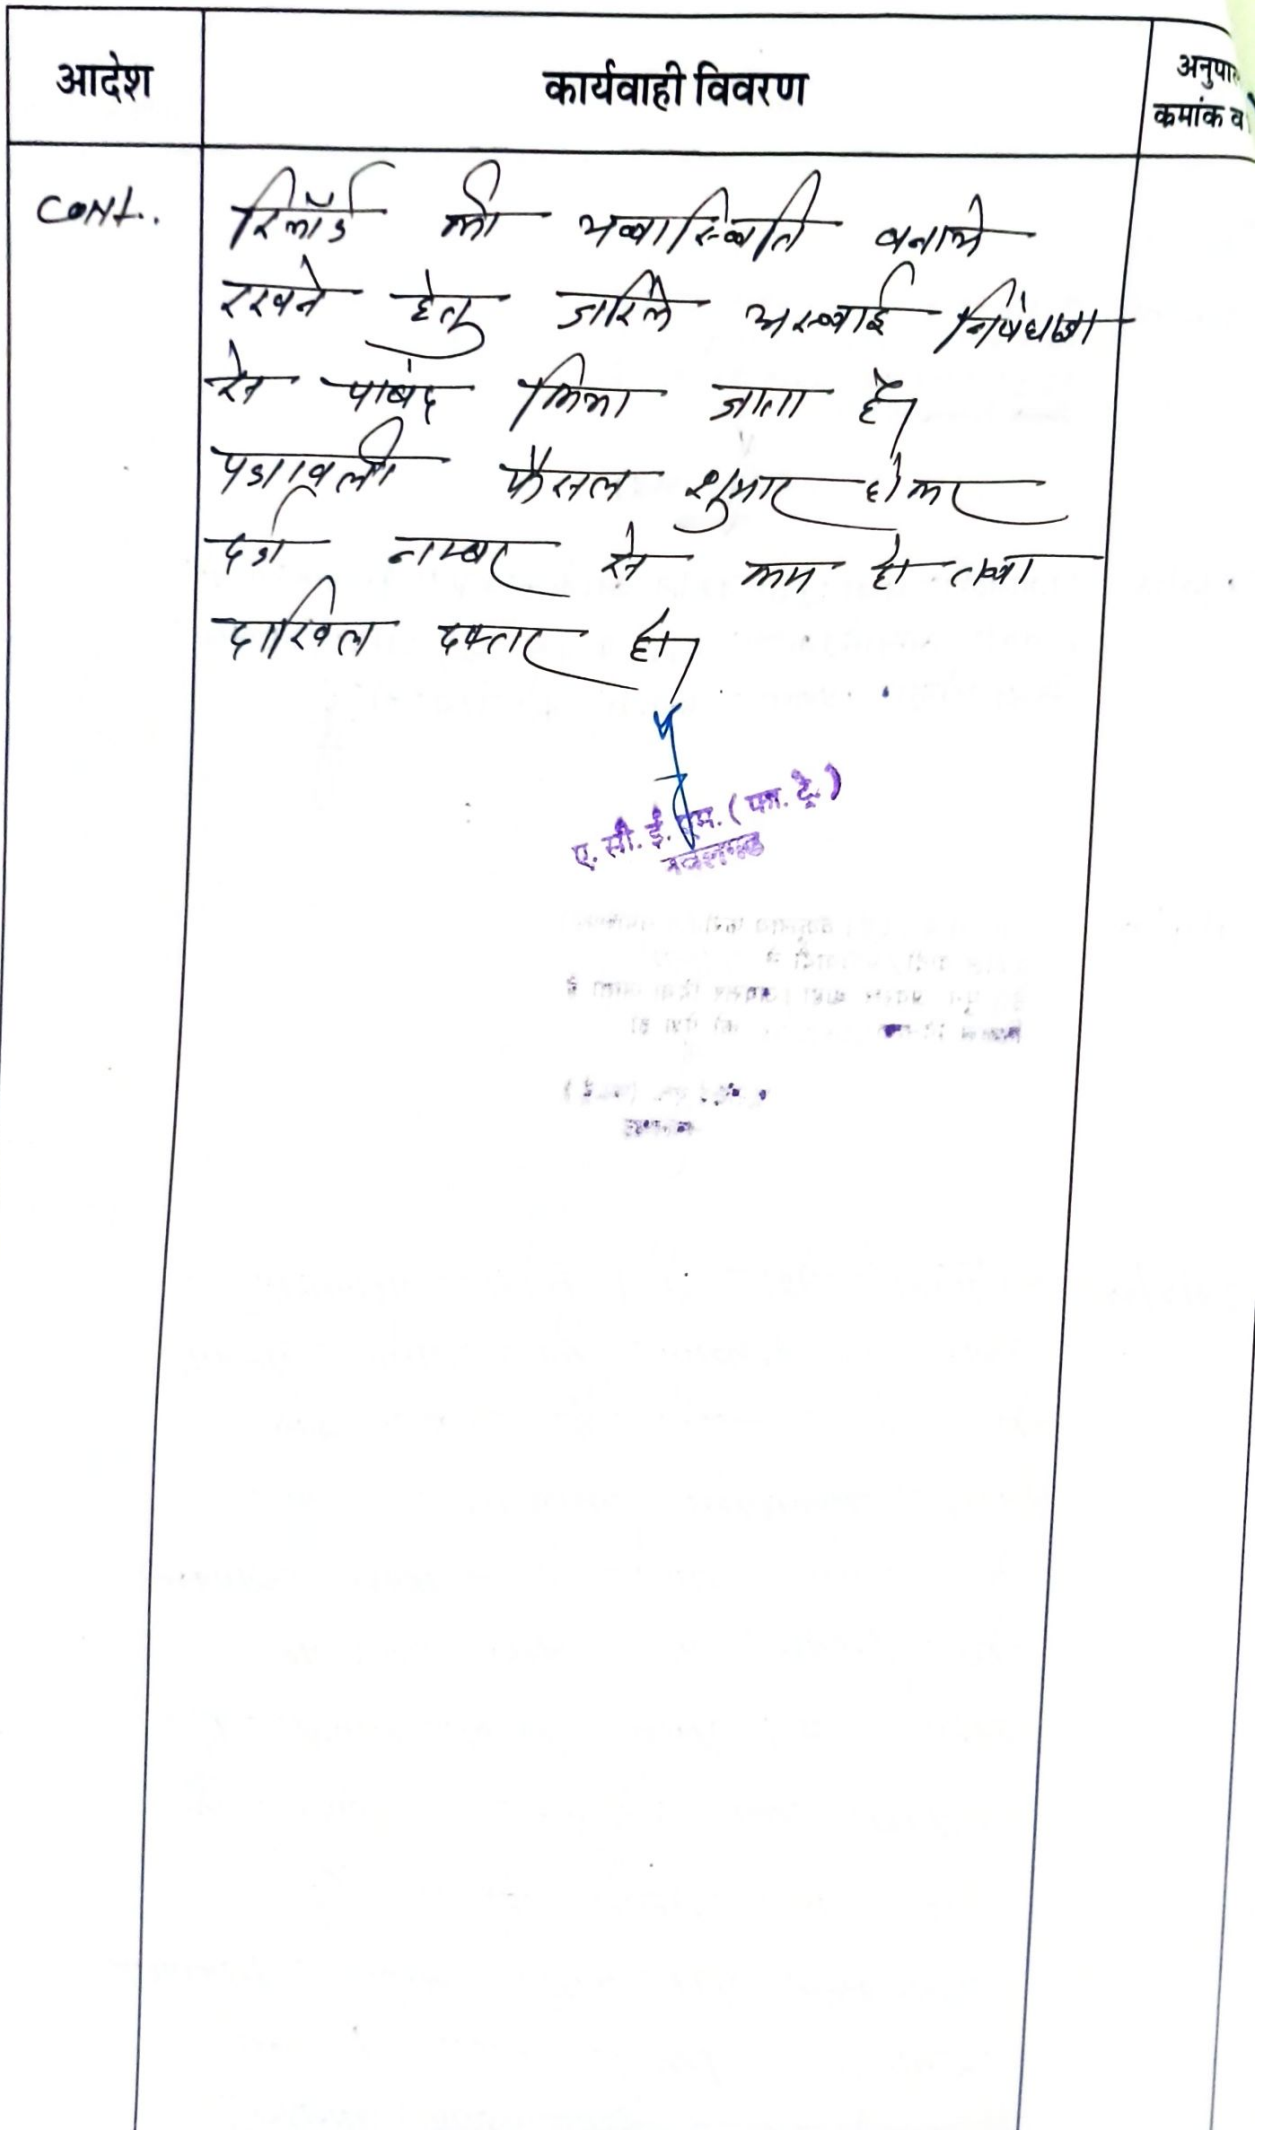 आदेश
कार्यवाही विवरण
अनुपा
क्रमांक व
CONT..
रिकॉर्ड की यथास्थिति बनाये
रखने हेतु जरिये अस्थाई निषेधाज्ञा
से पाबंद किया जाता है।
पत्रावली फैसल शुमार होकर
दर्ज नम्बर से कम हो तथा
दाखिल दफ्तर हो।
ए. सी. ई. एम. (फा. ट्रे.)